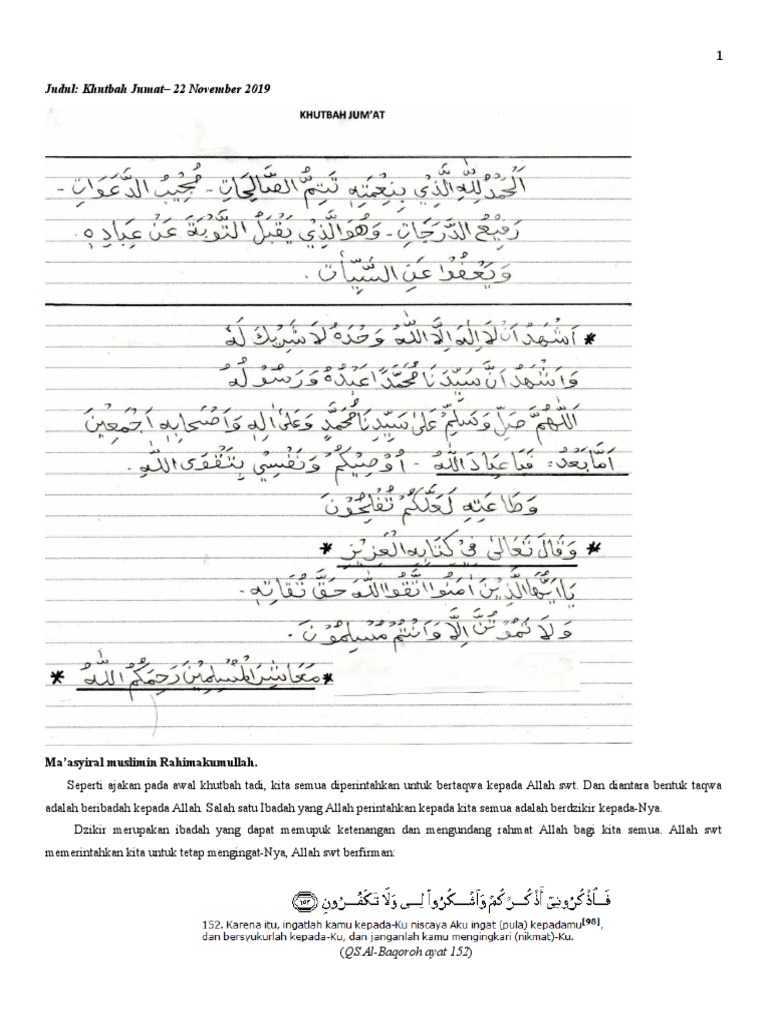 1
Judul: Khutbah Jumat– 22 November 2019
KHUTBAH JUM'AT
اَلْحَمْدُ لِلّٰهِ الَّذِيْ بِنِعْمَتِهِ تَتِمُّ الصَّالِحَاتِ - مُجِيْبُ الدَّعَوَاتِ -
رَفِيْعُ الدَّرَجَاتِ - وَهُوَ الَّذِيْ يَقْبَلُ التَّوْبَةَ عَنْ عِبَادِهِ .
وَيَعْفُوْا عَنِ السَّيِّأٰتِ .
* اَشْهَدُ اَنْ لَا اِلٰهَ اِلَّا اللّٰهُ وَحْدَهُ لَا شَرِيْكَ لَهُ
وَاَشْهَدُ اَنَّ سَيِّدَنَا مُحَمَّدًا عَبْدُهُ وَرَسُوْلُهُ
اَللّٰهُمَّ صَلِّ وَسَلِّمْ عَلٰى سَيِّدِنَا مُحَمَّدٍ وَعَلٰى اٰلِهِ وَاَصْحَابِهِ اَجْمَعِيْنَ
اَمَّا بَعْدُ : فَيَا عِبَادَ اللّٰهُ - اُوْصِيْكُمْ وَنَفْسِيْ بِتَقْوَى اللّٰهِ .
وَطَاعَتِهِ لَعَلَّكُمْ تُفْلِحُوْنَ
* وَقَالَ تَعَالٰى فِيْ كِتَابِهِ الْعَزِيْزِ *
يَااَيُّهَا الَّذِيْنَ اٰمَنُوا اتَّقُوا اللّٰهَ حَقَّ تُقَاتِهِ .
وَلَا تَمُوْتُنَّ اِلَّا وَاَنْتُمْ مُسْلِمُوْنَ .
* مَعَاشِرَ الْمُسْلِمِيْنَ رَحِمَكُمُ اللّٰهُ *
Ma'asyiral muslimin Rahimakumullah.
Seperti ajakan pada awal khutbah tadi, kita semua diperintahkan untuk bertaqwa kepada Allah swt. Dan diantara bentuk taqwa
adalah beribadah kepada Allah. Salah satu Ibadah yang Allah perintahkan kepada kita semua adalah berdzikir kepada-Nya.
Dzikir merupakan ibadah yang dapat memupuk ketenangan dan mengundang rahmat Allah bagi kita semua. Allah swt
memerintahkan kita untuk tetap mengingat-Nya, Allah swt berfirman:
فَاذْكُرُونِيٓ أَذْكُرْكُمْ وَاشْكُرُوا۟ لِى وَلَا تَكْفُرُونِ ﴿١٥٢﴾
152. Karena itu, ingatlah kamu kepada-Ku niscaya Aku ingat (pula) kepadamu[98],
dan bersyukurlah kepada-Ku, dan janganlah kamu mengingkari (nikmat)-Ku.
(QS.Al-Baqoroh ayat 152)